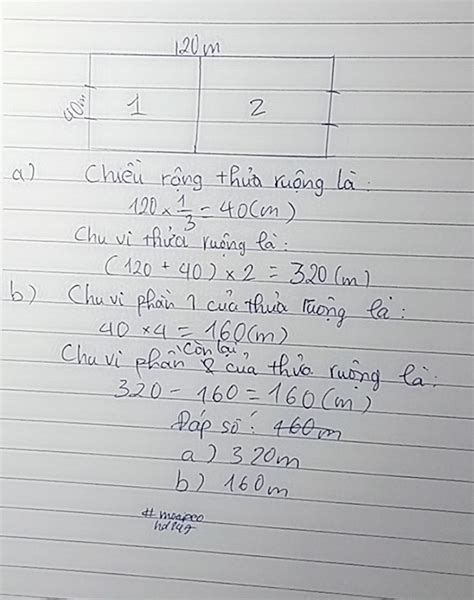 120m
40m
1
2
a) Chiều rộng thửa ruộng là:
120 × 1/3 = 40(m)
Chu vi thửa ruộng là:
(120 + 40) × 2 = 320(m)
b) Chu vi phần 1 của thửa ruộng là:
40 × 4 = 160(m)
còn lại
Chu vi phần 2 của thửa ruộng là:
320 - 160 = 160(m)
Đáp số: 160m
a) 320m
b) 160m